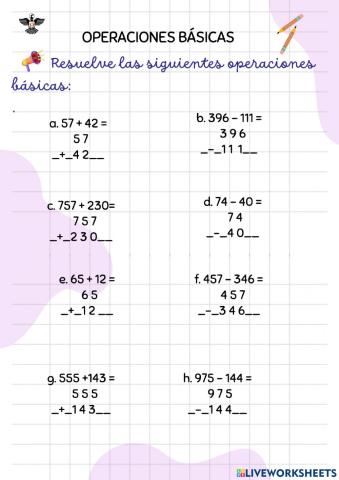 OPERACIONES BÁSICAS
Resuelve las siguientes operaciones
básicas:
.
a. 57 + 42 =
5 7
_+_4 2__
b. 396 – 111 =
3 9 6
_-_1 1 1__
c. 757 + 230=
7 5 7
_+_2 3 0__
d. 74 – 40 =
7 4
_-_4 0__
e. 65 + 12 =
6 5
_+_1 2 __
f. 457 – 346 =
4 5 7
_-_3 4 6__
g. 555 +143 =
5 5 5
_+_1 4 3__
h. 975 – 144 =
9 7 5
_-_1 4 4__
LIVEWORKSHEETS